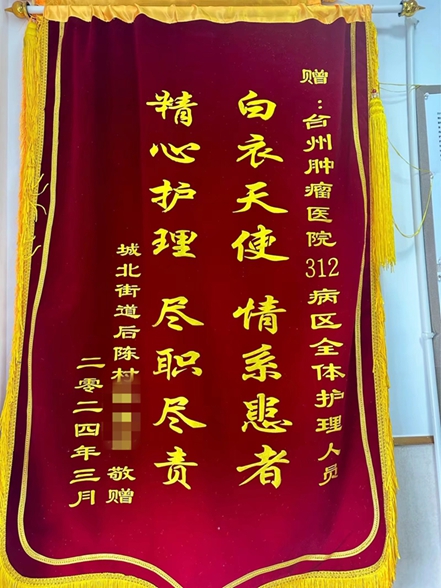 赠：台州肿瘤医院312病区全体护理人员
白衣天使 情系患者
精心护理 尽职尽责
城北街道后陈村
敬赠
二零二四年三月